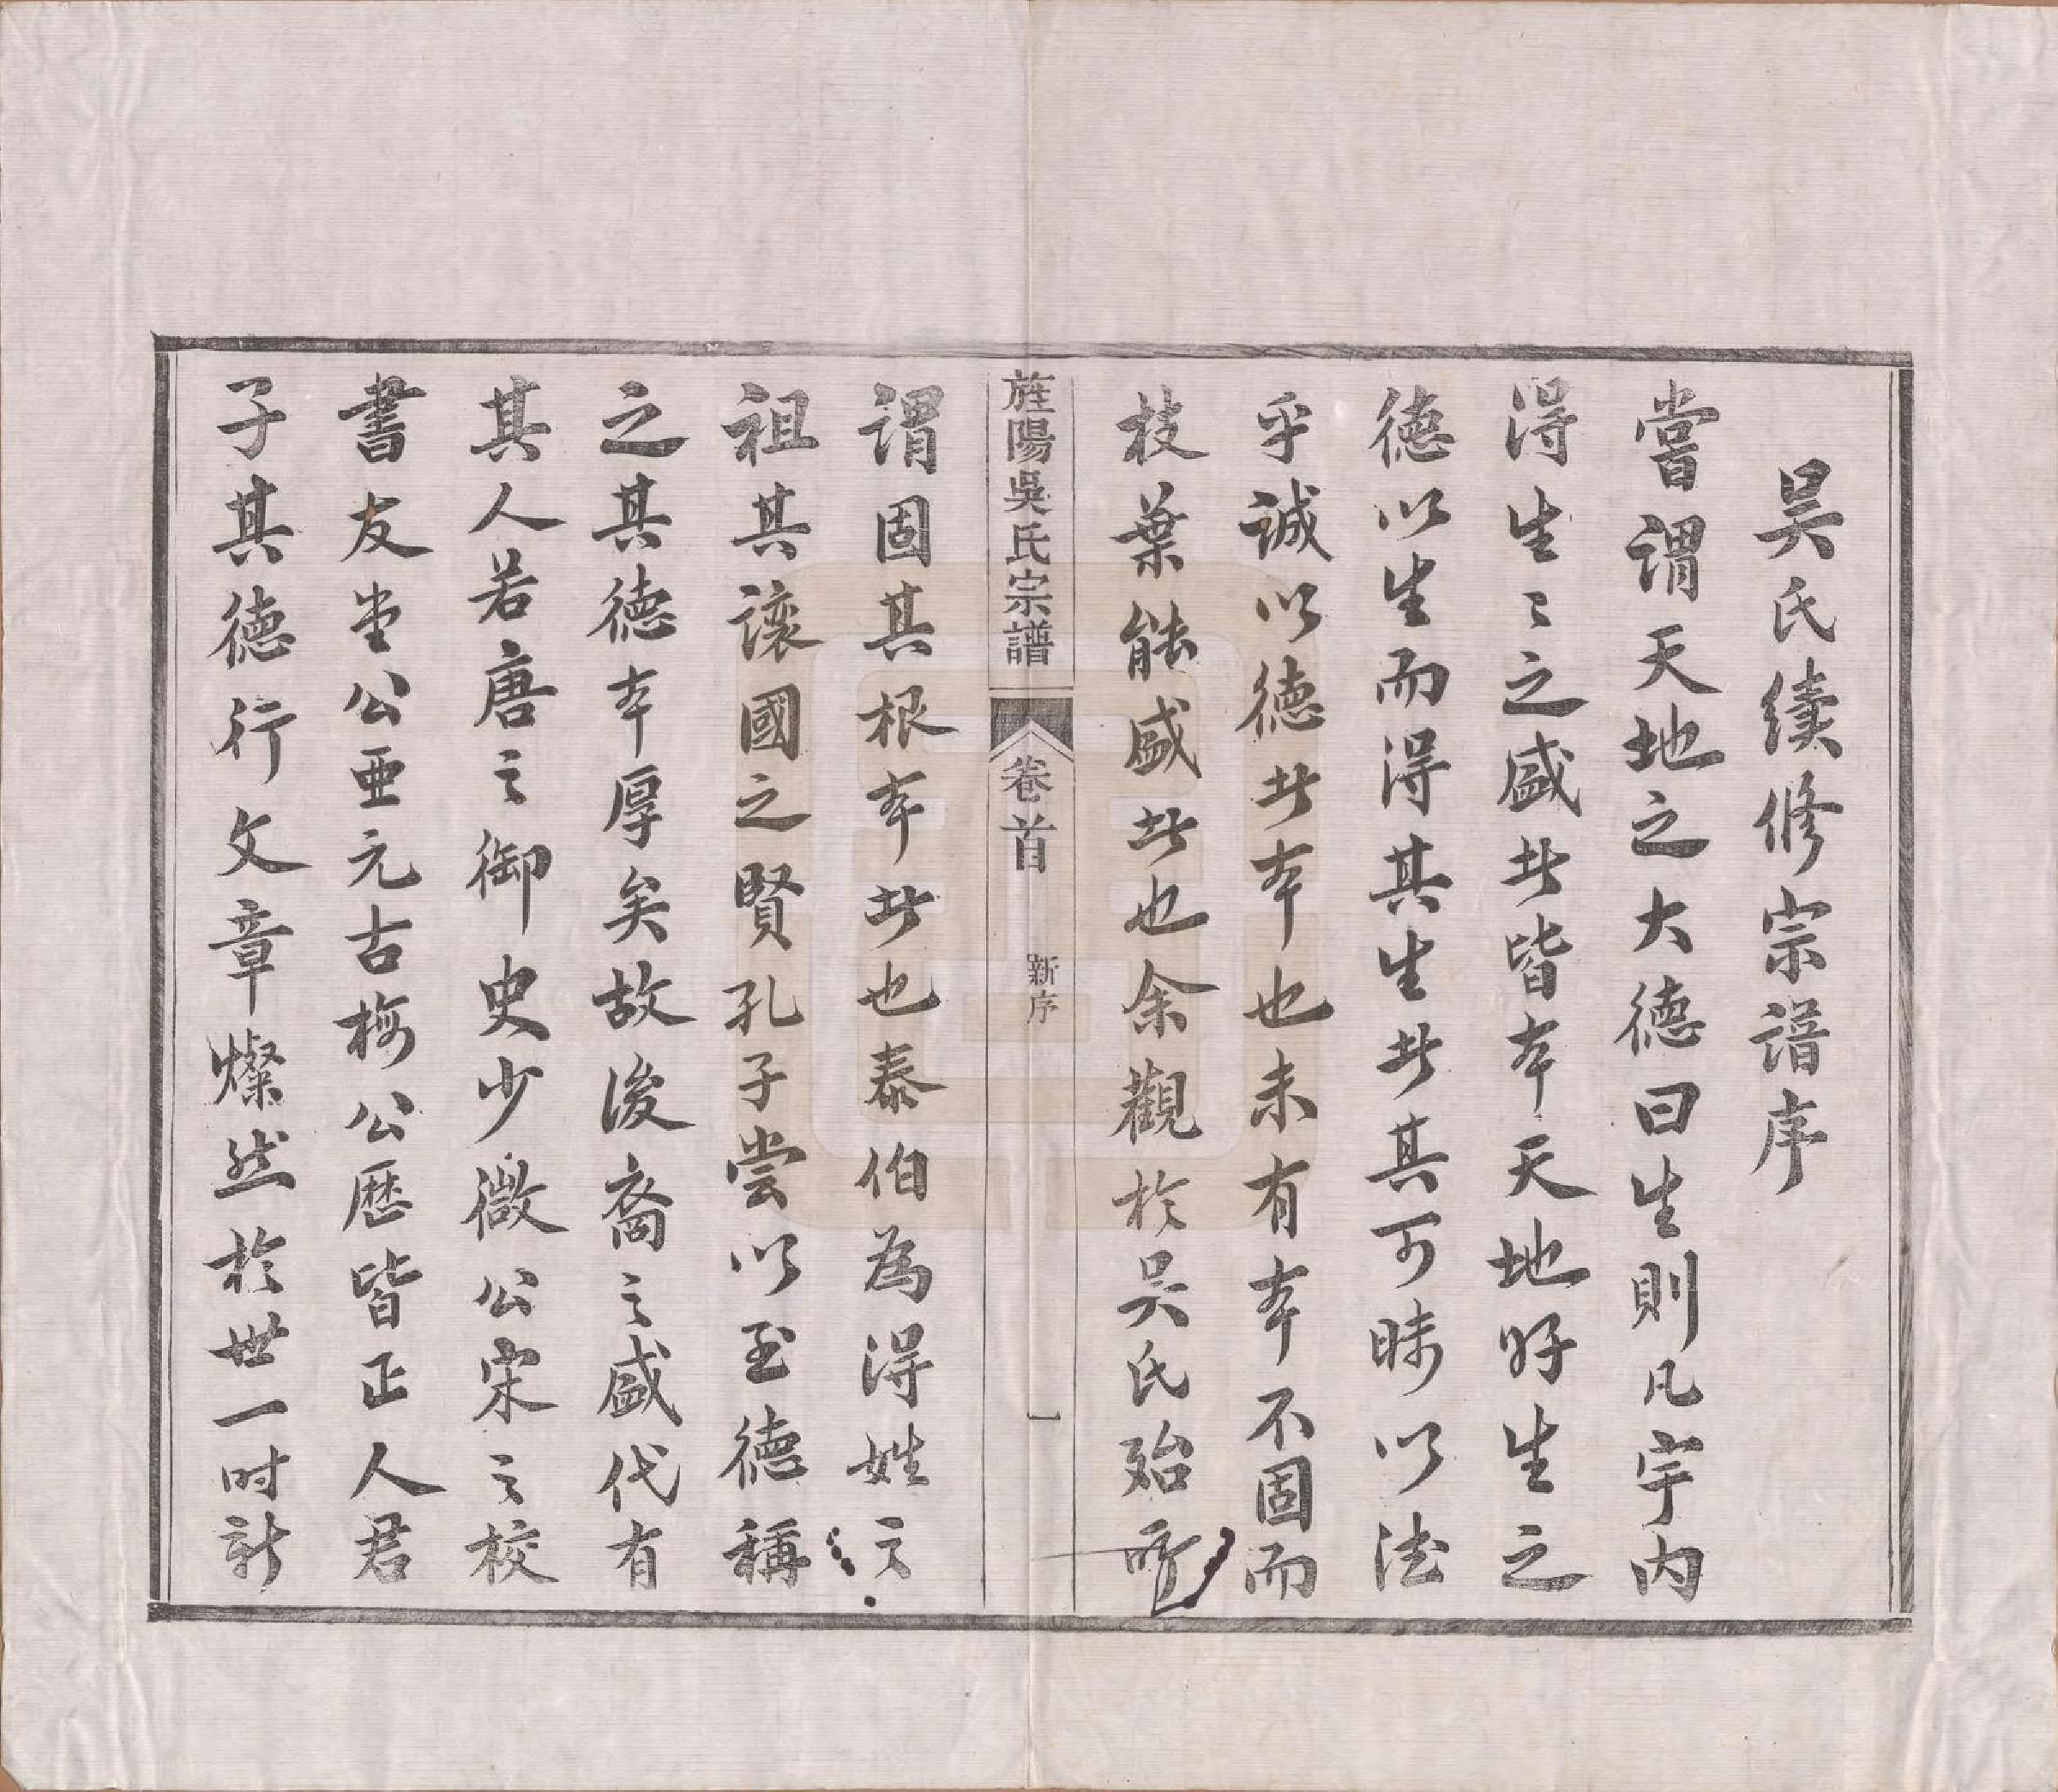 吳氏續修宗譜序
嘗謂天地之大德曰生則凡宇内
得生〻之盛此皆本天地好生之
德以生而得其生此其可昧以法
乎誠以德此本也未有本不固而
枝葉能盛此也余觀於吴氏殆所
旌陽吳氏宗譜 卷首 新序 一
謂固其根本此也泰伯為得姓之
祖其讓國之賢孔子嘗以至德稱
之其德本厚矣故後裔之盛代有
其人若唐之御史少微公宋之校
書友堂公亜元古梅公歴皆正人君
子其德行文章燦然於世一时新